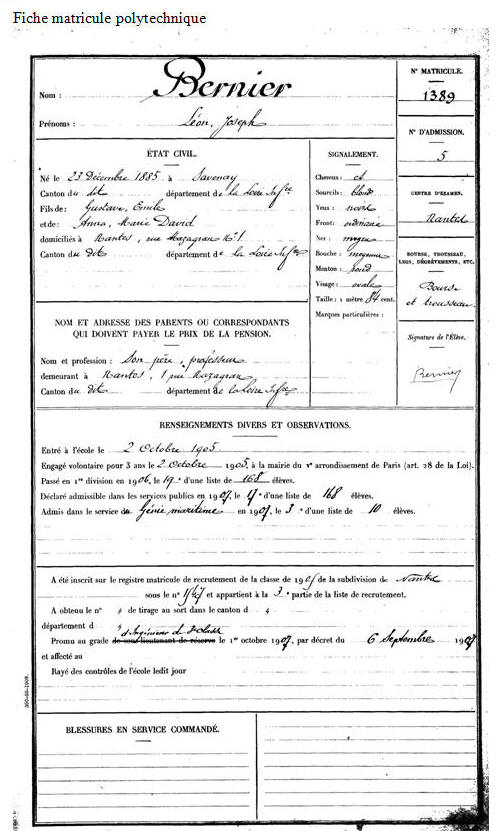 Fiche matricule polytechnique
Nom : Bernier
Prénoms : Léon, Joseph
ÉTAT CIVIL.
Né le 23 Décembre 1885 à Savenay
Canton du dit département de la Loire Infre
Fils de : Gustave, Emile
et de : Anna, Marie David
domiciliés à Nantes, rue Mazagran No 1
Canton du dit département de la Loire Infre
NOM ET ADRESSE DES PARENTS OU CORRESPONDANTS
QUI DOIVENT PAYER LE PRIX DE LA PENSION.
Nom et profession : Son père, professeur
demeurant à Nantes, 1 rue Mazagran
Canton du dit département de la Loire Infre
SIGNALEMENT.
Cheveux : et
Sourcils : blonds
Yeux :
Front : ordinaire
Nez : moyen
Bouche : moyenne
Menton : rond
Visage : ovale
Taille : 1 mètre 84 cent.
Marques particulières :
N° MATRICULE.
1389
N° D'ADMISSION.
5
CENTRE D'EXAMEN.
Nantes
BOURSE, TROUSSEAU,
LEGS, DÉGRÈVEMENTS, ETC.
Bourse
et trousseau
Signature de l'Élève.
Bernier
RENSEIGNEMENTS DIVERS ET OBSERVATIONS.
Entré à l'école le 2 Octobre 1905
Engagé volontaire pour 3 ans le 2 octobre 1905, à la mairie du Ve arrondissement de Paris (art. 28 de la Loi).
Passé en 1re division en 1906, le 19e d'une liste de 168 élèves.
Déclaré admissible dans les services publics en 1907, le 17e d'une liste de 168 élèves.
Admis dans le service du Génie maritime en 1907, le 3e d'une liste de 10 élèves.
A été inscrit sur le registre matricule de recrutement de la classe de 1905 de la subdivision de Nantes
sous le n° 1547 et appartient à la 3e partie de la liste de recrutement.
A obtenu le n° " de tirage au sort dans le canton d "
département d "
d'Ingénieur de 3e classe
Promu au grade de sous-lieutenant de réserve le 1er octobre 1907, par décret du 6 Septembre 1907
et affecté au
Rayé des contrôles de l'école ledit jour
BLESSURES EN SERVICE COMMANDÉ.